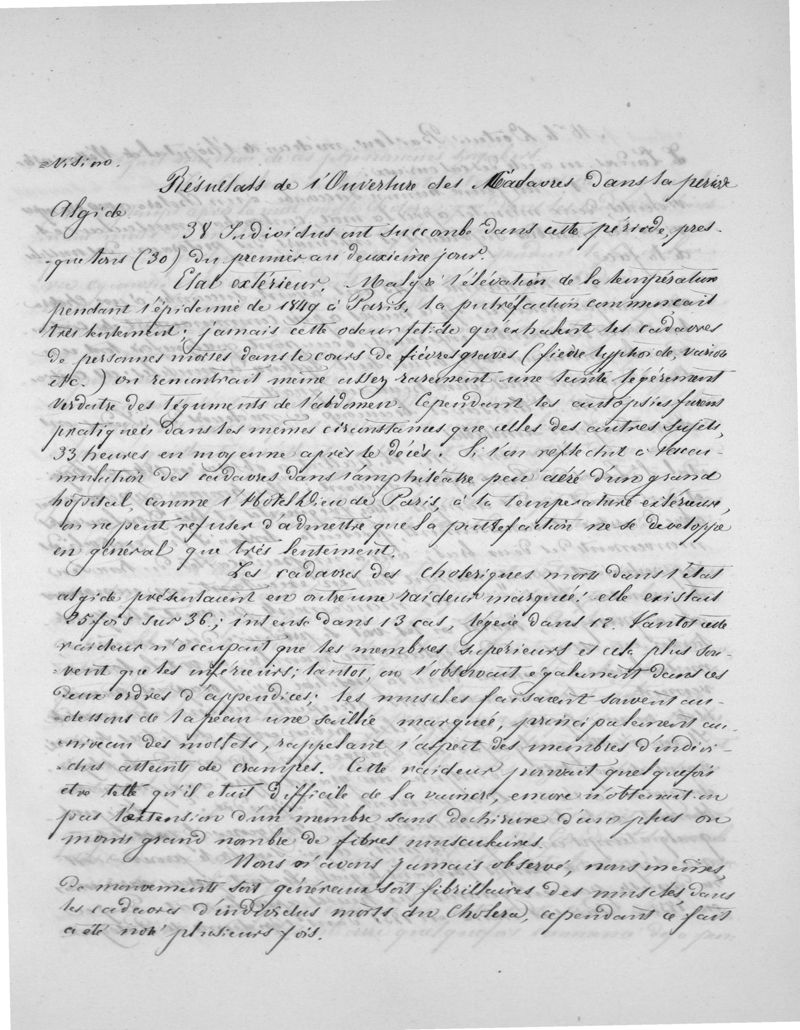 Résultats de l'Ouverture des Cadavres dans la periode
Algide
38 Individus ont succombé dans cette période, pres-
-que tous (30) du premier au deuxième jour.
Etat extérieur. Malgré l'élévation de la température
pendant l'épidemie de 1849 à Paris, la putréfaction commencait
très lentement; jamais cette odeur fetide qu'exhalent les cadavres
de personnes mortes dans le cours de fièvres graves (fièvre typhoide, variole
etc.) on rencontrait même assez rarement une teinte légérement
verdatre des téguments de l'abdomen. Cependant les autopsies furent
pratiquées dans les mêmes circonstances que celles des autres sujets,
33 heures en moyenne après le décès. Si l'on reflechit a l'accu-
mulation des cadavres dans l'amphitéatre peu aéré d'un grand
hôpital, comme l'Hotel Dieu de Paris, à la temperature extérieure,
on ne peut refuser d'admettre que la putréfaction ne se developpe
en général que très lentement.
Les cadavres des choleriques morts dans l'état
algide présentaient en outre une raideur marquée: elle existait
25 fois sur 36; intense dans 13 cas, légère dans 12. Tantot cette
raideur n'occupait que les membres superieurs et cela plus sou-
vent que les inferieurs; tantot, on l'observait egalement dans ces
deux ordres d'appendices; les muscles faisaient souvent au-
dessous de la peau une saillie marquée, principalement au
niveau des mollets, rappelant l'aspect des membres d'indivi-
-dus atteints de crampes. Cette raideur pouvait quelquefois
être telle qu'il etait difficile de la vaincre, encore n'obtenait-on
pas l'extension d'un membre sans dechirure d'un plus ou
moins grand nombre de fibres musculaires.
Nous n'avons jamais observé, nous mêmes,
de mouvements soit généraux soit fibrillaires des muscles dans
les cadavres d'individus morts du Cholera, cependant ce fait
a été noté plusieurs fois.